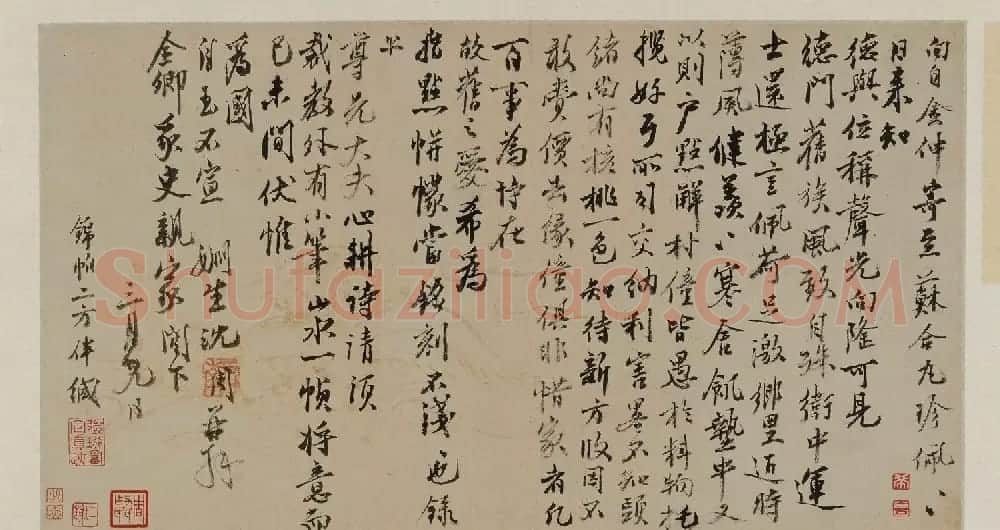 向自金仲寄至蘇合丸珍佩〻
日来知
德與位稱聲光向隆可見
德門舊族風致自殊衛中運
士還極言佩荷足激鄉里近時
薄風健羨〻寒舍飢墊中又
以則户點解村僮皆愚於料物托
攬好丐所引交納利害畧不知頭
緒尚有核桃一色知待新方收因不
敢費價去緣僮俱非惜家者凡
百事為恃在
故舊之愛希為
指點帡幪當銘刻不淺也錄
上
尊兄大夫心耕詩請須
裁教外有小筆山水一幀將意而
已未間伏惟
為國
自玉不宣 姻生沈周再拜
全卿 史親家閣下
三月 日
錦帕二方伴緘
Shufaziliao.com